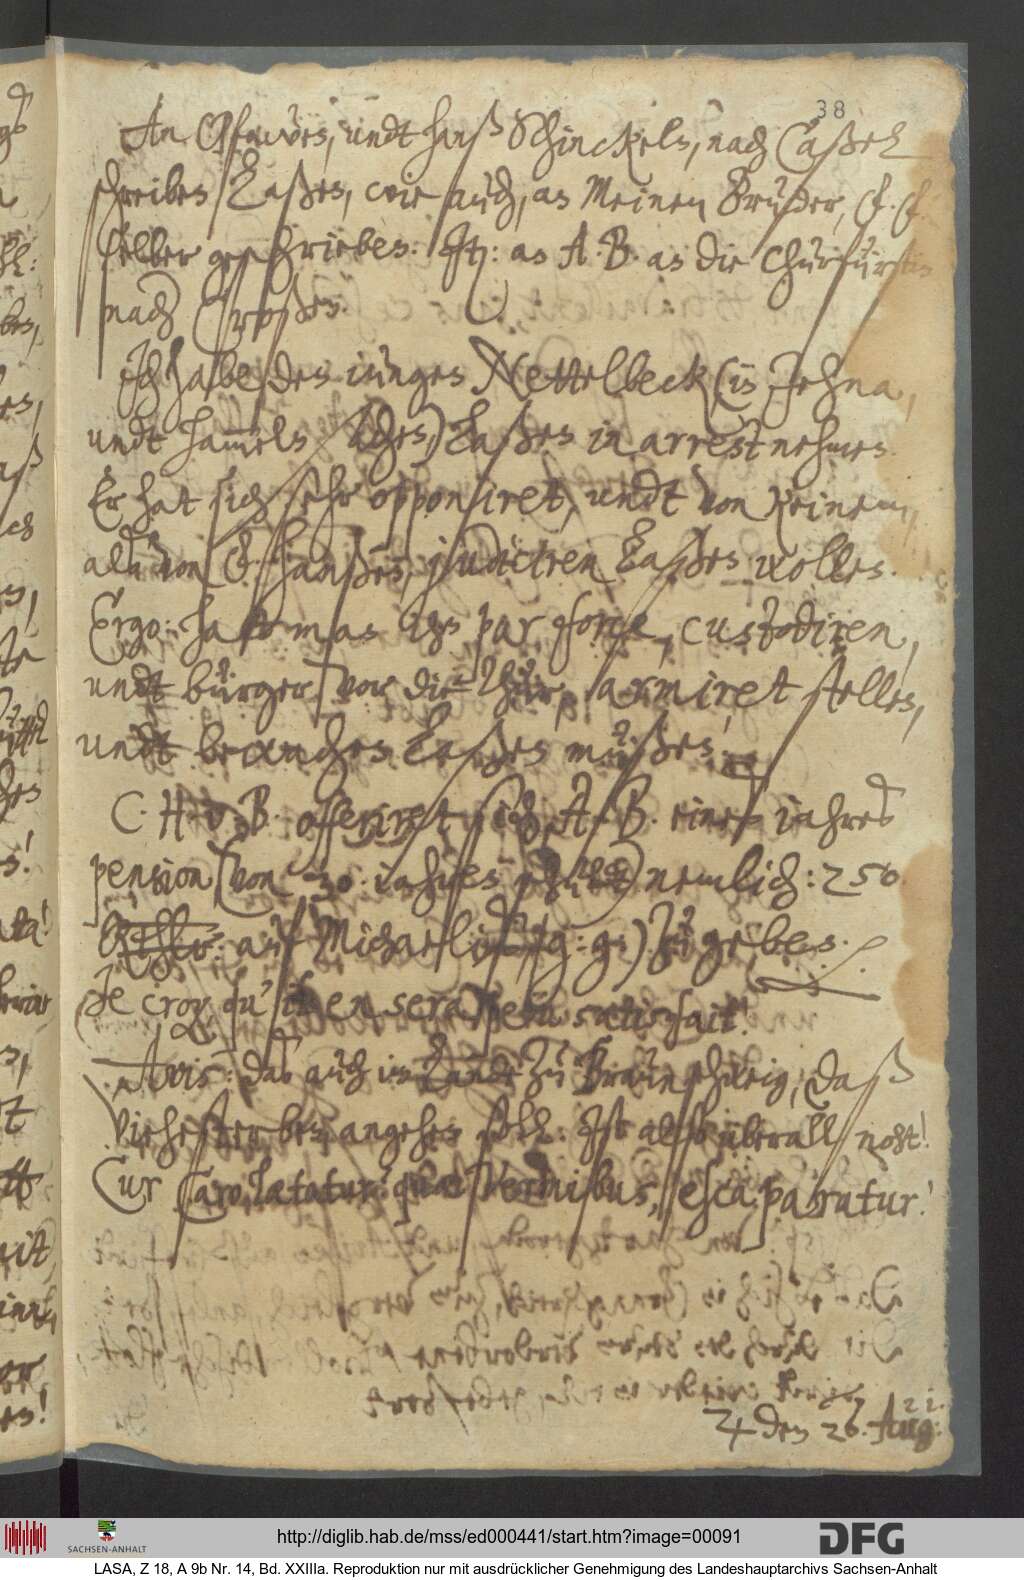 38
An Offewes, undt Hanß Schinckeln, nach Caßell
schreiben laßen, wie auch, an Meinen Bruder, F. F.
selber geschrieben. It: an A. B. an die Churfürstin
nach Croßen.
Ich habe den iungen Nettelbeck (in Jehna,
undt hamels sachen) laßen in arrest nehmen.
Er hat sich sehr opponiret, undt von Keinem,
alß von judiciren laßen wollen.
Ergo: hatt man ihn par force, custodiren,
undt bürger vor die Thür, armiret stellen,
undt bewachen laßen müßen.
C. H. v. B. offeriret sich, A. B. eines iahres
pension (von 30 iahren schuldt) nemlich: 250
Rthlr: auf Michaelis (g: g:) zu geben.
Je croy qu'il en sera peu satisfait!
Avis: das auch im Lande zu Braunschweig, daß
viehesterben angehen soll: Ist also überall noht!
Cur Caro lætatur? quæ Vermibus, esca paratur!
21
♃ den 26. Aug:
http://diglib.hab.de/mss/ed000441/start.htm?image=00091
SACHSEN-ANHALT
DFG
LASA, Z 18, A 9b Nr. 14, Bd. XXIIIa. Reproduktion nur mit ausdrücklicher Genehmigung des Landeshauptarchivs Sachsen-Anhalt